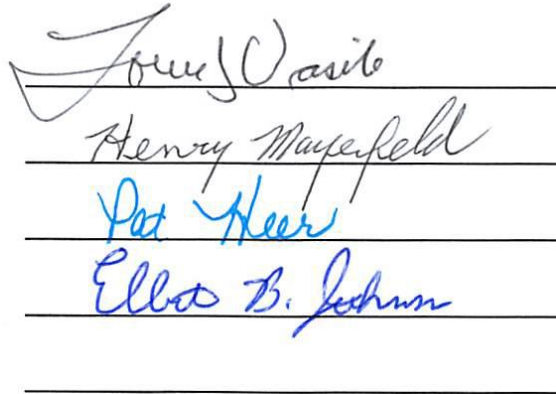 Louis J Vasile
Henry Mayerfeld
Pat Heer
Elliot B. Johnson